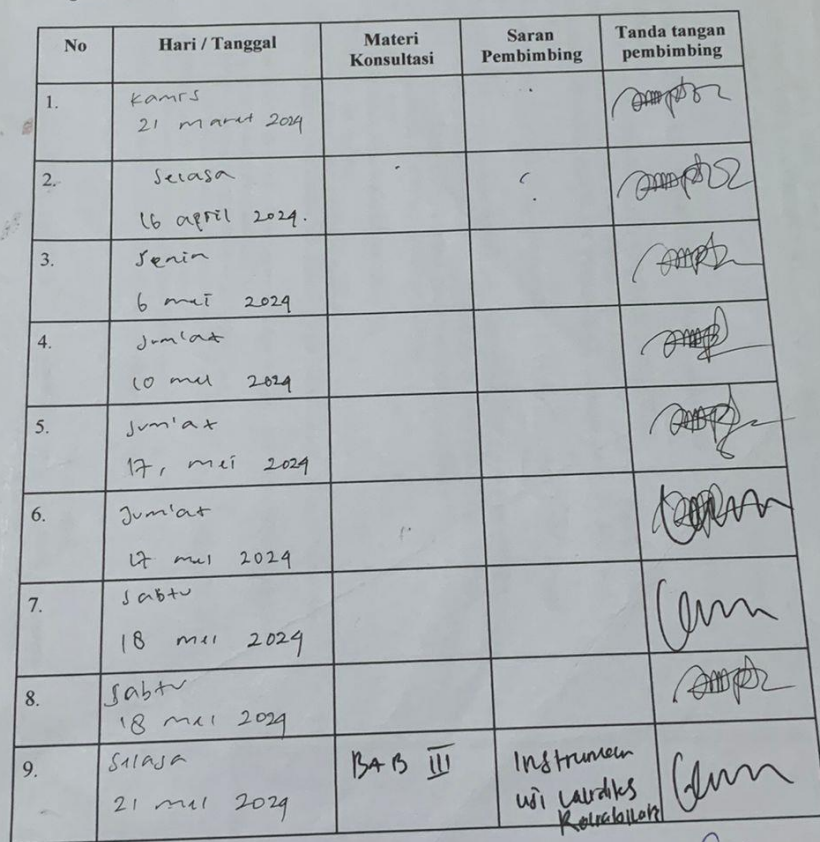 No Hari / Tanggal Materi Konsultasi Saran Pembimbing Tanda tangan pembimbing
1. Kamis
21 maret 2024
2. Selasa
16 april 2024.
3. Senin
6 mei 2024
4. Jum'at
10 mei 2024
5. Jum'at
17, mei 2024
6. Jum'at
17 mei 2024
7. Sabtu
18 mei 2024
8. Sabtu
18 mei 2024
9. Selasa BAB III Instrumen
21 mei 2024 uji